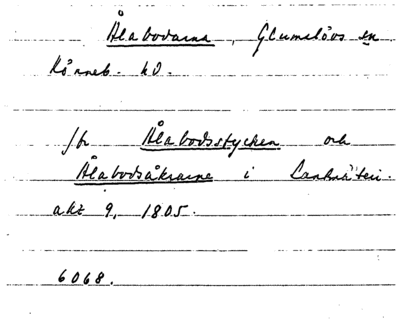 Ålabodarna, Glumslövs sn
Rönneb. hd.
jfr Ålabodsstycken och
Ålabodsåkrarne i Lantmäteri-
akt 9, 1805.
6068.